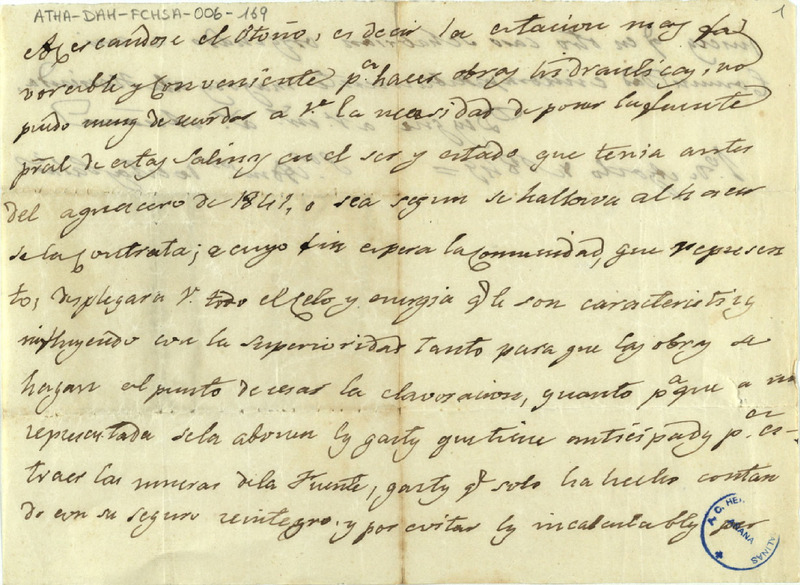 ATHA-DAH-FCHSA-006-169
1
Acercandose el Otoño, es decir la estacion mas fa
vorable y conveniente p.ª hacer obras hidraulicas, no
puedo menos de recordar a V. la necesidad de poner la fuente
pral de estas Salinas en el ser y estado que tenia antes
del aguacero de 1841, o sea segun se hallava al hacer
se la Contrata; a cuyo fin espera la Comunidad, que represen
to, desplegara V. todo el celo y energia q.e le son caracteristicas
influyendo con la Superioridad tanto para que las obras se
hagan al punto de cesar la elavoracion, quanto p.ª que a mi
representada se la abonen los gastos que tiene anticipados p.ª es-
traer las mueras de la Fuente, gastos q.e solo ha hecho contan
do con su seguro reintegro, y por evitar los incalculables per
A.C. HE
ARANA
ALINAS